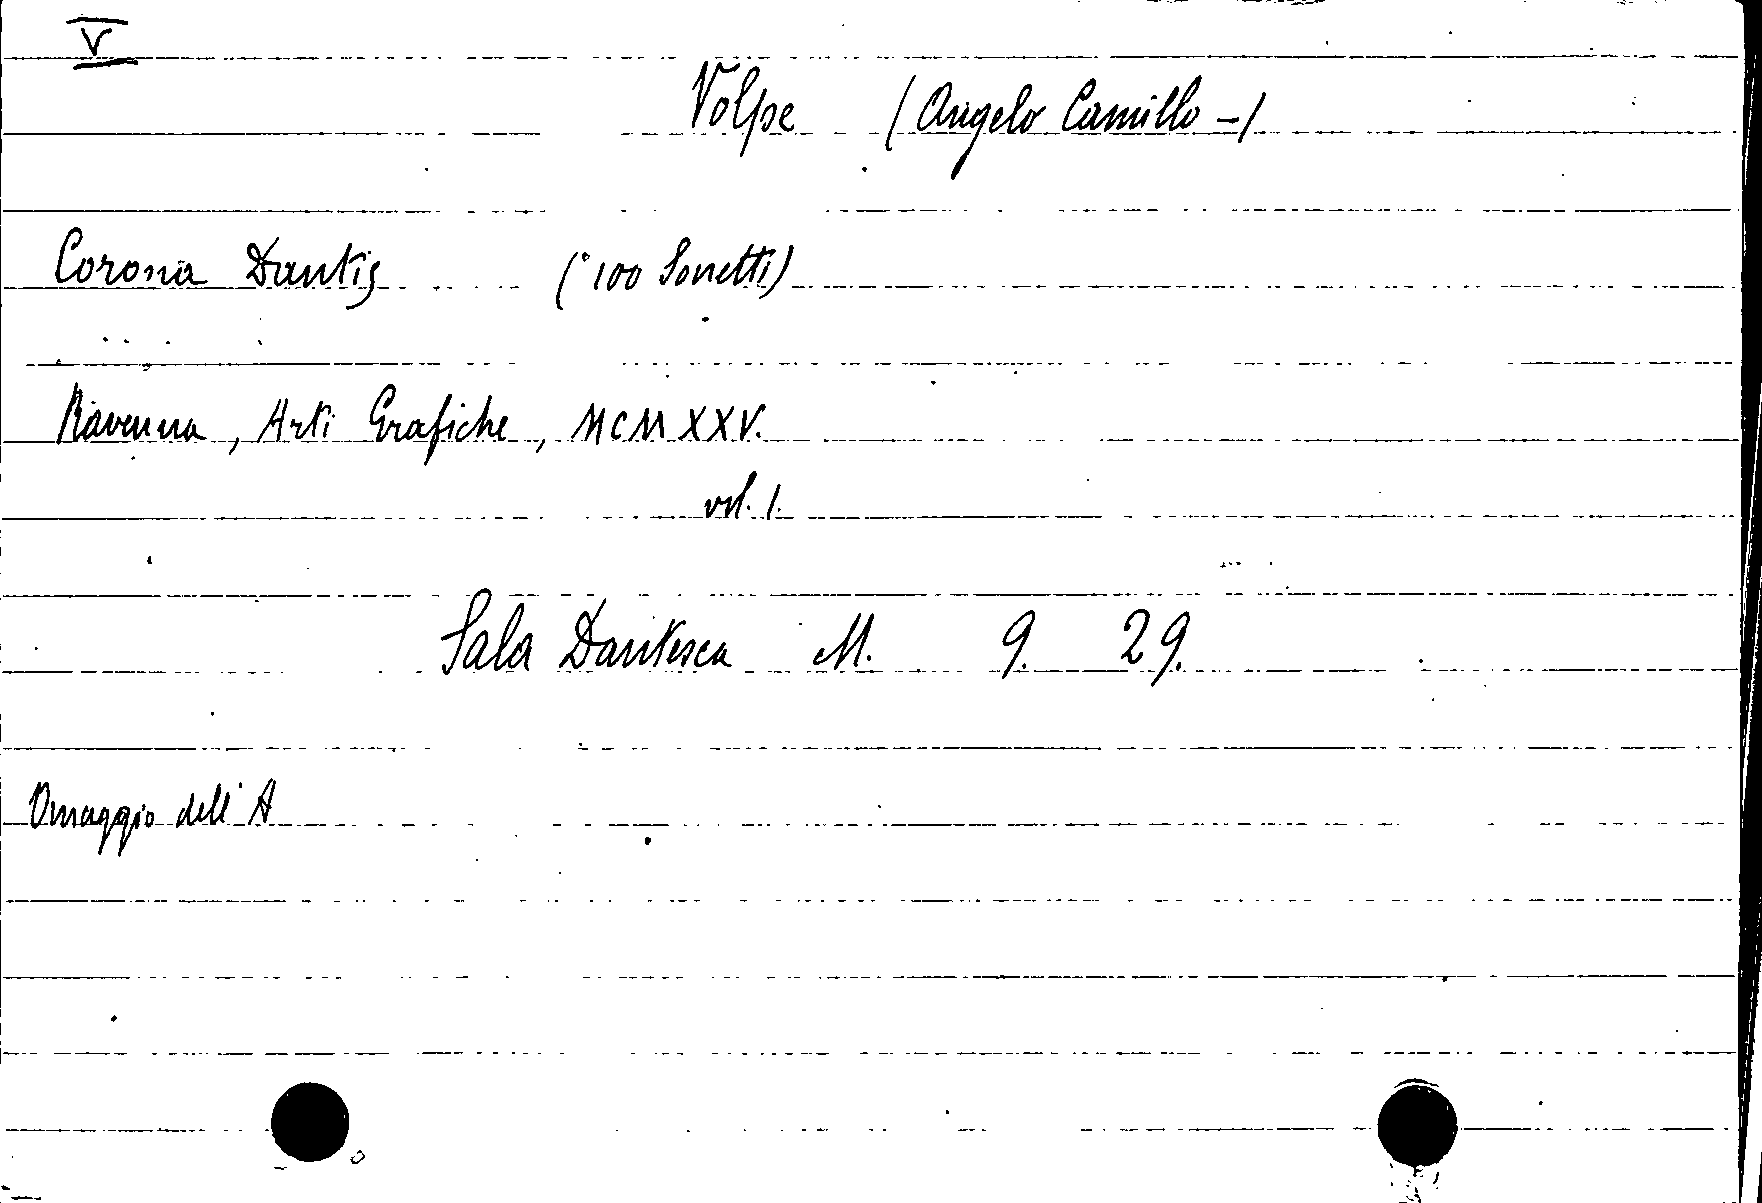 V
Volpe (Angelo Camillo -)
Corona Dantis (100 Sonetti)
Ravenna, Arti Grafiche, MCMXXV.
vol. 1.
Sala Dantesca M. 9. 29.
Omaggio dell'A